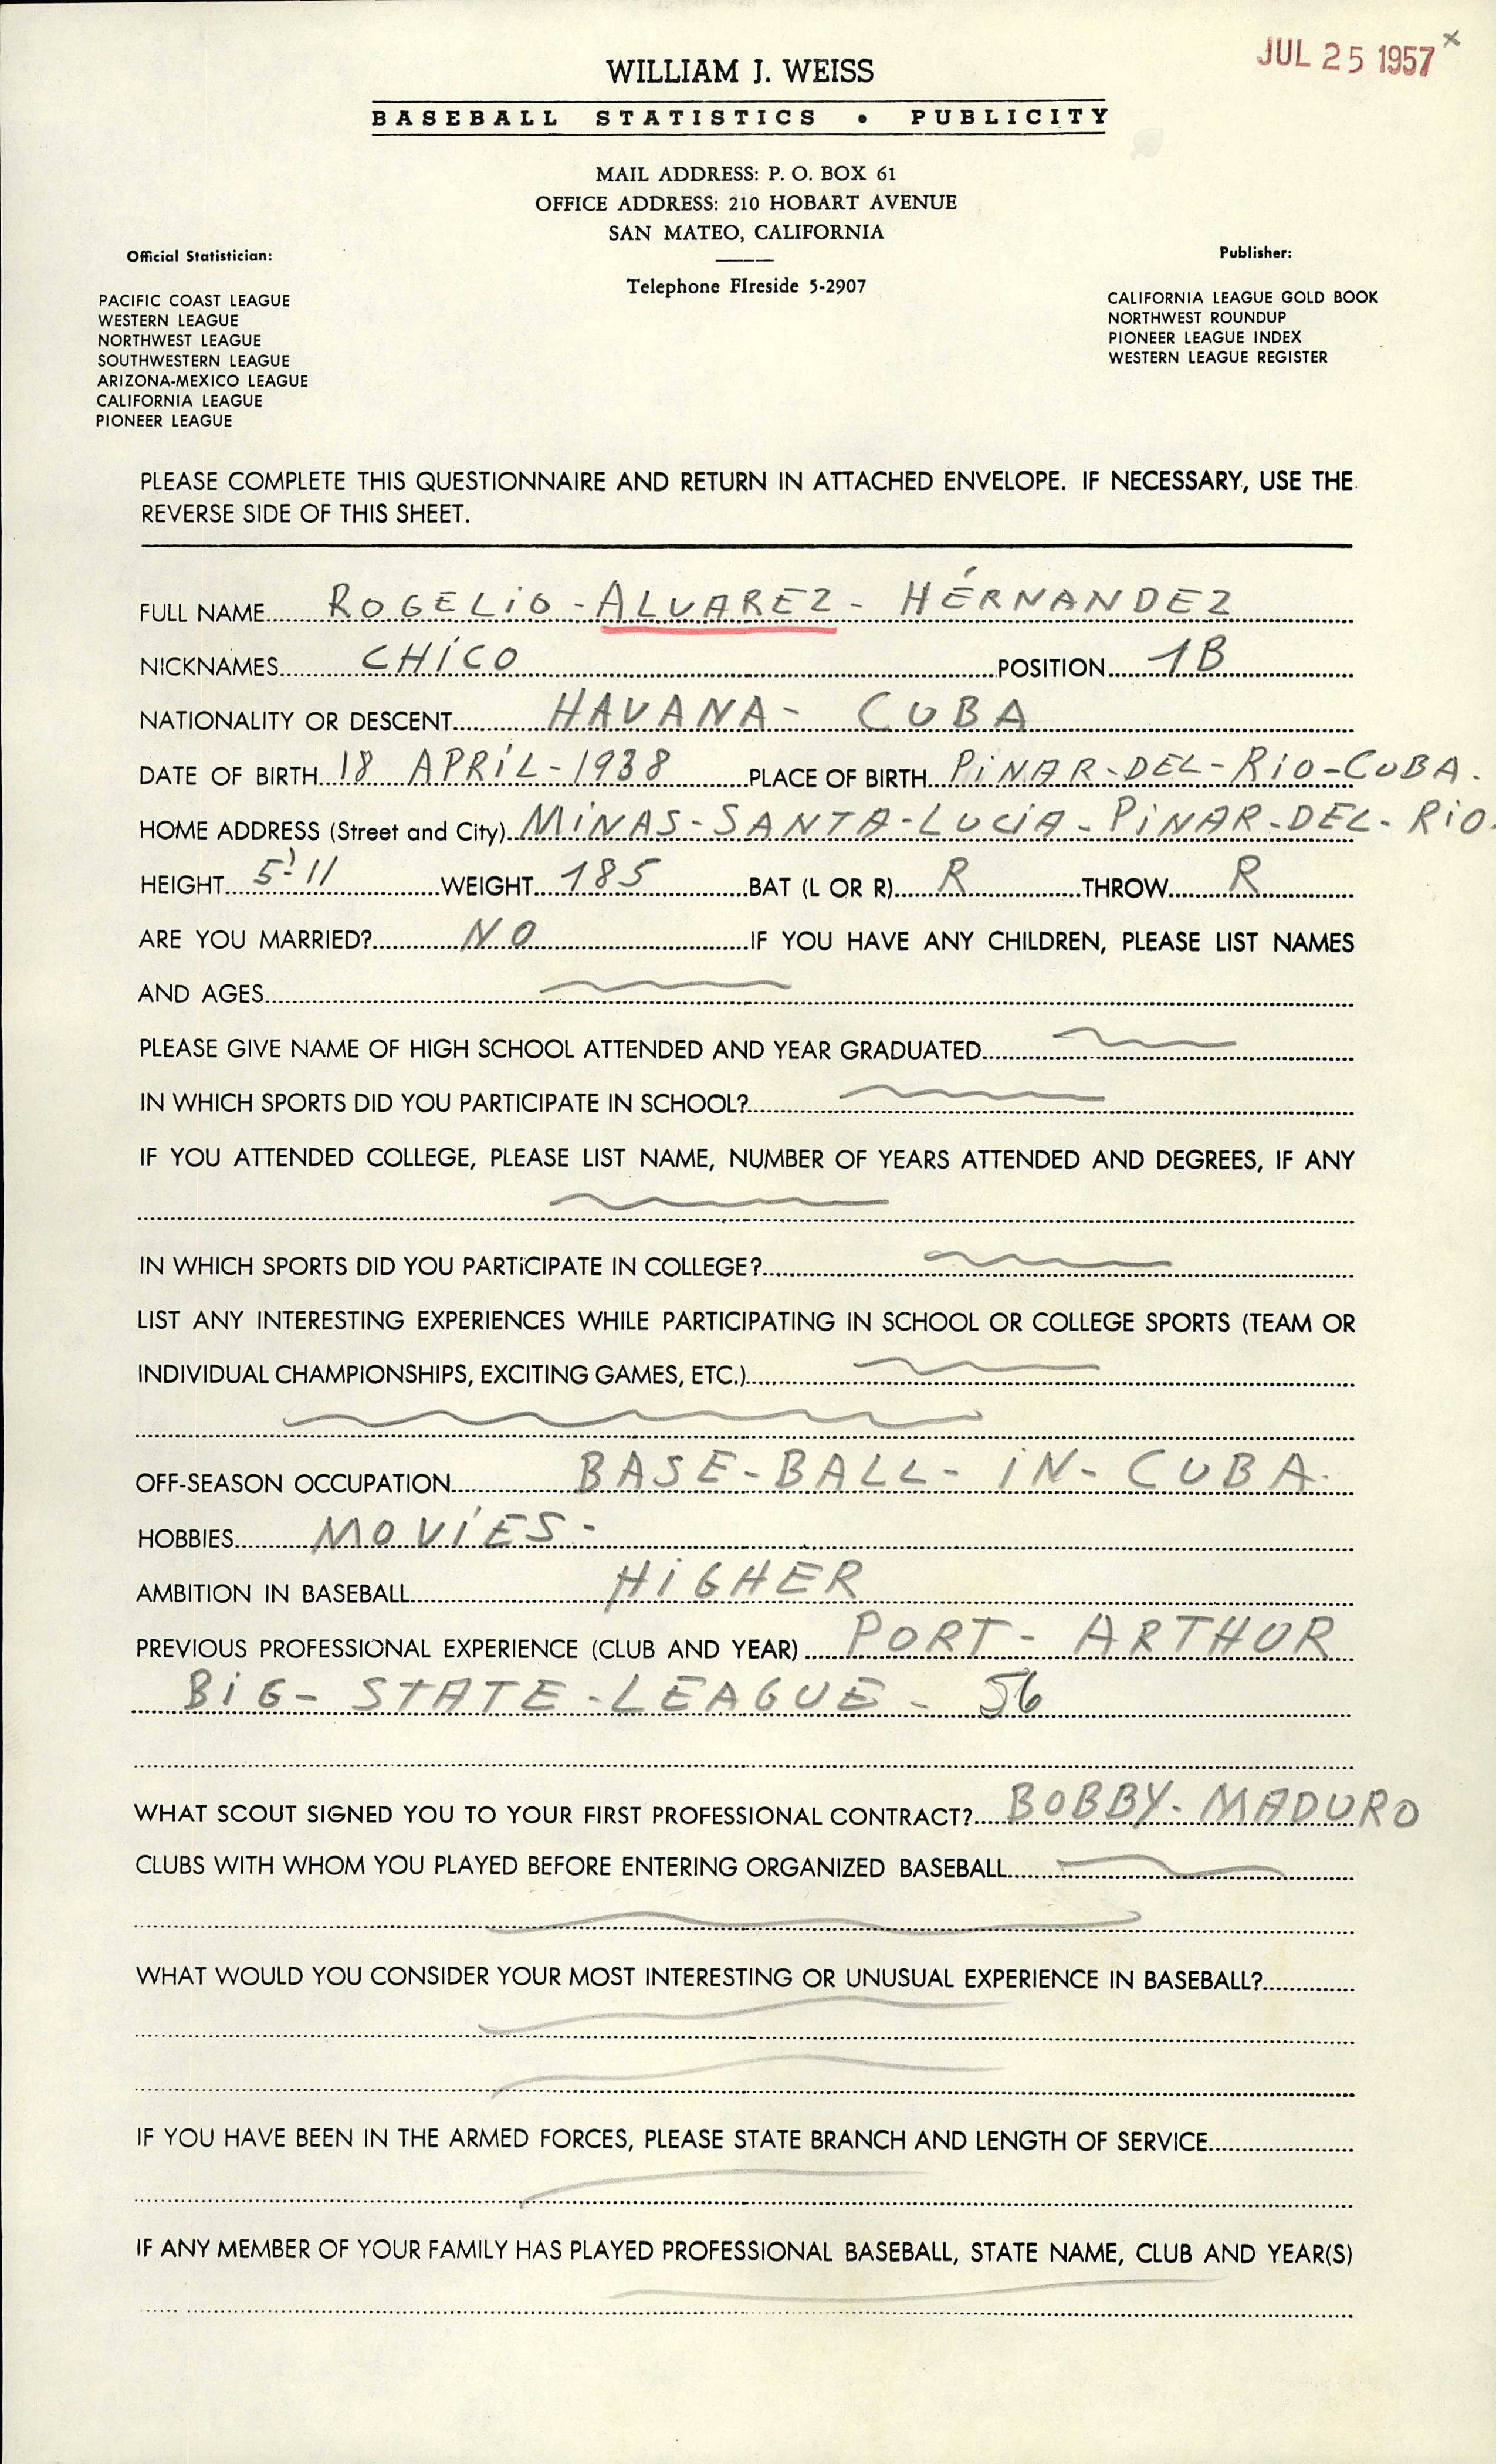 JUL 25 1957 x
WILLIAM J. WEISS
BASEBALL STATISTICS • PUBLICITY
MAIL ADDRESS: P. O. BOX 61
OFFICE ADDRESS: 210 HOBART AVENUE
SAN MATEO, CALIFORNIA
Telephone FIreside 5-2907
Official Statistician:
PACIFIC COAST LEAGUE
WESTERN LEAGUE
NORTHWEST LEAGUE
SOUTHWESTERN LEAGUE
ARIZONA-MEXICO LEAGUE
CALIFORNIA LEAGUE
PIONEER LEAGUE
Publisher:
CALIFORNIA LEAGUE GOLD BOOK
NORTHWEST ROUNDUP
PIONEER LEAGUE INDEX
WESTERN LEAGUE REGISTER
PLEASE COMPLETE THIS QUESTIONNAIRE AND RETURN IN ATTACHED ENVELOPE. IF NECESSARY, USE THE
REVERSE SIDE OF THIS SHEET.
FULL NAME ROGELIO - ALVAREZ - HÉRNANDEZ
NICKNAMES CHICO POSITION 1B
NATIONALITY OR DESCENT HAVANA - CUBA
DATE OF BIRTH 18 APRIL - 1938 PLACE OF BIRTH PINAR-DEL-RIO-CUBA.
HOME ADDRESS (Street and City) MINAS-SANTA-LUCIA-PINAR-DEL-RIO.
HEIGHT 5'-11 WEIGHT 185 BAT (L OR R) R THROW R
ARE YOU MARRIED? NO IF YOU HAVE ANY CHILDREN, PLEASE LIST NAMES
AND AGES
PLEASE GIVE NAME OF HIGH SCHOOL ATTENDED AND YEAR GRADUATED
IN WHICH SPORTS DID YOU PARTICIPATE IN SCHOOL?
IF YOU ATTENDED COLLEGE, PLEASE LIST NAME, NUMBER OF YEARS ATTENDED AND DEGREES, IF ANY
IN WHICH SPORTS DID YOU PARTICIPATE IN COLLEGE?
LIST ANY INTERESTING EXPERIENCES WHILE PARTICIPATING IN SCHOOL OR COLLEGE SPORTS (TEAM OR
INDIVIDUAL CHAMPIONSHIPS, EXCITING GAMES, ETC.)
OFF-SEASON OCCUPATION BASE-BALL-IN-CUBA.
HOBBIES MOVIES-
AMBITION IN BASEBALL HIGHER
PREVIOUS PROFESSIONAL EXPERIENCE (CLUB AND YEAR) PORT- ARTHUR
BIG- STATE-LEAGUE- 56
WHAT SCOUT SIGNED YOU TO YOUR FIRST PROFESSIONAL CONTRACT? BOBBY-MADURO
CLUBS WITH WHOM YOU PLAYED BEFORE ENTERING ORGANIZED BASEBALL
WHAT WOULD YOU CONSIDER YOUR MOST INTERESTING OR UNUSUAL EXPERIENCE IN BASEBALL?
IF YOU HAVE BEEN IN THE ARMED FORCES, PLEASE STATE BRANCH AND LENGTH OF SERVICE
IF ANY MEMBER OF YOUR FAMILY HAS PLAYED PROFESSIONAL BASEBALL, STATE NAME, CLUB AND YEAR(S)